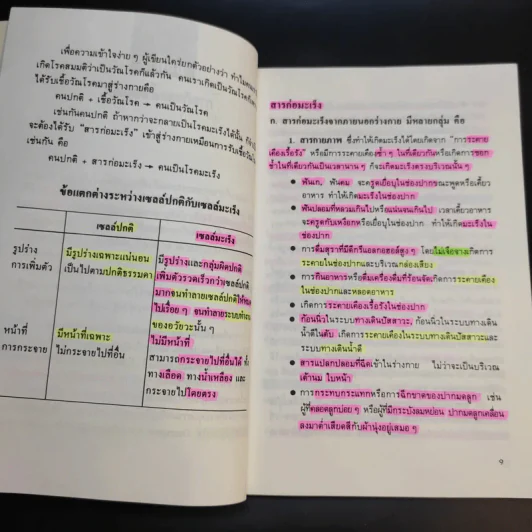 เพื่อความเข้าใจง่าย ๆ ผู้เขียนใคร่ยกตัวอย่างว่า ทำไม
เกิดโรคสมมติว่าเป็นวัณโรคก็แล้วกัน คนเราเกิดเป็นวัณโรค
ได้รับเชื้อวัณโรคมาสู่ร่างกายคือ
คนปกติ + เชื้อวัณโรค → คนเป็นวัณโรค
เช่นกันคนปกติ ถ้าหากว่าจะกลายเป็นโรคมะเร็งได้นั้น
จะต้องได้รับ "สารก่อมะเร็ง" เข้าสู่ร่างกายเหมือนการรับเชื้อ
เช่นกัน คือ
คนปกติ + สารก่อมะเร็ง → คนเป็นโรคมะเร็ง
ข้อแตกต่างระหว่างเซลล์ปกติกับเซลล์มะเร็ง
เซลล์ปกติ เซลล์มะเร็ง
รูปร่าง มีรูปร่างเฉพาะแน่นอน มีรูปร่างและกลุ่มผิดปกติ
การเพิ่มตัว เป็นไปตามปกติธรรมดา เพิ่มตัวรวดเร็วกว่าเซลล์ปกติ
มากจนทำลายเซลล์ปกติให้
ไปเรื่อย ๆ จนทำลายระบบ
ของอวัยวะนั้น ๆ
หน้าที่ มีหน้าที่เฉพาะ ไม่มีหน้าที่
การกระจาย ไม่กระจายไปที่อื่น สามารถกระจายไปที่อื่นได้ ทั้ง
ทางเลือด ทางน้ำเหลือง และ
กระจายไปโดยตรง
สารก่อมะเร็ง
ก. สารก่อมะเร็งจากภายนอกร่างกาย มีหลายกลุ่ม คือ
1. สารกายภาพ ซึ่งทำให้เกิดมะเร็งได้โดยเกิดจาก "การระคาย
เคืองเรื้อรัง" หรือมีการระคายเคืองซ้ำ ๆ ในที่เดียวกันหรือเกิดการชอก
ช้ำในที่เดียวกันเป็นเวลานาน ๆ ก็จะเกิดมะเร็งตรงบริเวณนั้น ๆ
● ฟันเก, ฟันคม จะครูดเยื่อบุในช่องปากขณะพูดหรือเคี้ยว
อาหาร ทำให้เกิดมะเร็งในช่องปาก
● ฟันปลอมที่หลวมเกินไปหรือแน่นจนเกินไป เวลาเคี้ยวอาหาร
จะครูดกับเหงือกหรือเยื่อบุในช่องปาก ทำให้เกิดมะเร็งใน
ช่องปาก
● การดื่มสุราที่มีดีกรีแอลกอฮอล์สูง ๆ โดยไม่เจือจางเกิดการ
ระคายในช่องปากและบริเวณกล่องเสียง
● การกินอาหารหรือดื่มเครื่องดื่มที่ร้อนจัดเกิดการระคายเคือง
ในช่องปากและหลอดอาหาร
● เกิดการระคายเคืองเรื้อรังในช่องปาก
● ก้อนนิ่วในระบบทางเดินปัสสาวะ, ก้อนนิ่วในระบบทางเดิน
น้ำดีในตับ เกิดการระคายเคืองในระบบทางเดินปัสสาวะและ
ระบบทางเดินน้ำดี
● สารแปลกปลอมที่ฉีดเข้าในร่างกาย ไม่ว่าจะเป็นบริเวณ
เต้านม ใบหน้า
● การกระทบกระแทกหรือการฉีกขาดของปากมดลูก เช่น
ผู้ที่คลอดลูกบ่อย ๆ หรือผู้ที่มีกระบังลมหย่อน ปากมดลูกเคลื่อน
ลงมาต่ำเสียดสีกับผ้านุ่งอยู่เสมอ ๆ
9